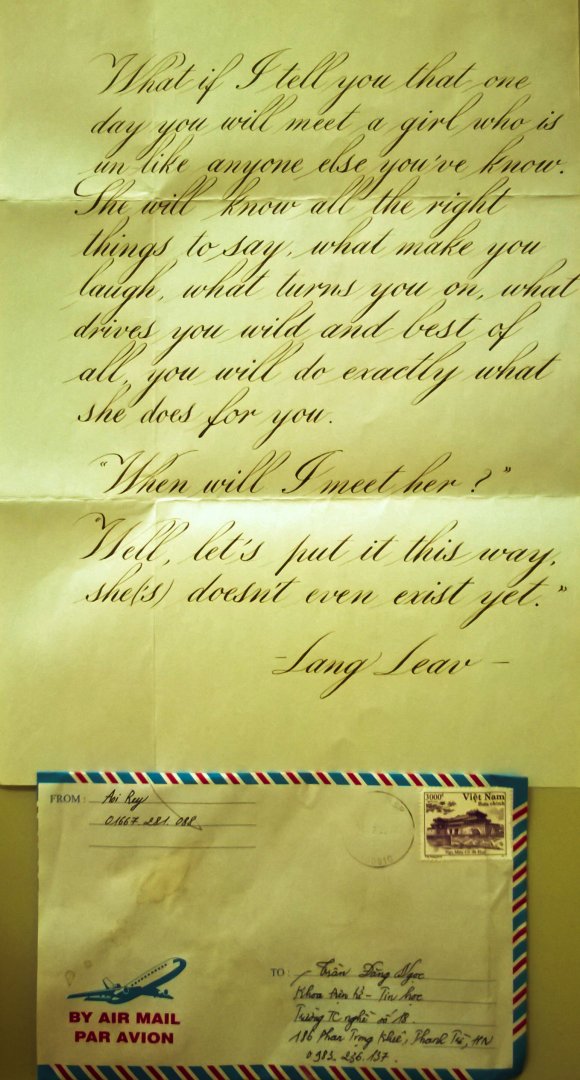 What if I tell you that one
day you will meet a girl who is
un like anyone else you've know.
She will know all the right
things to say, what make you
laugh, what turns you on, what
drives you wild and best of
all, you will do exactly what
she does for you.
"When will I meet her?"
Well, let's put it this way,
she('s) doesn't even exist yet."
-Lang Leav-
FROM: Aoi Rey
01667 281 088
3000đ Việt Nam
Bưu chính
BY AIR MAIL
PAR AVION
TO: Trần Đăng Ngọc
Khoa - Tin học
Trường TC nghề số 18.
186 Phan Trọng Khiê, Thanh Trì, HN
0983. 236. 137.